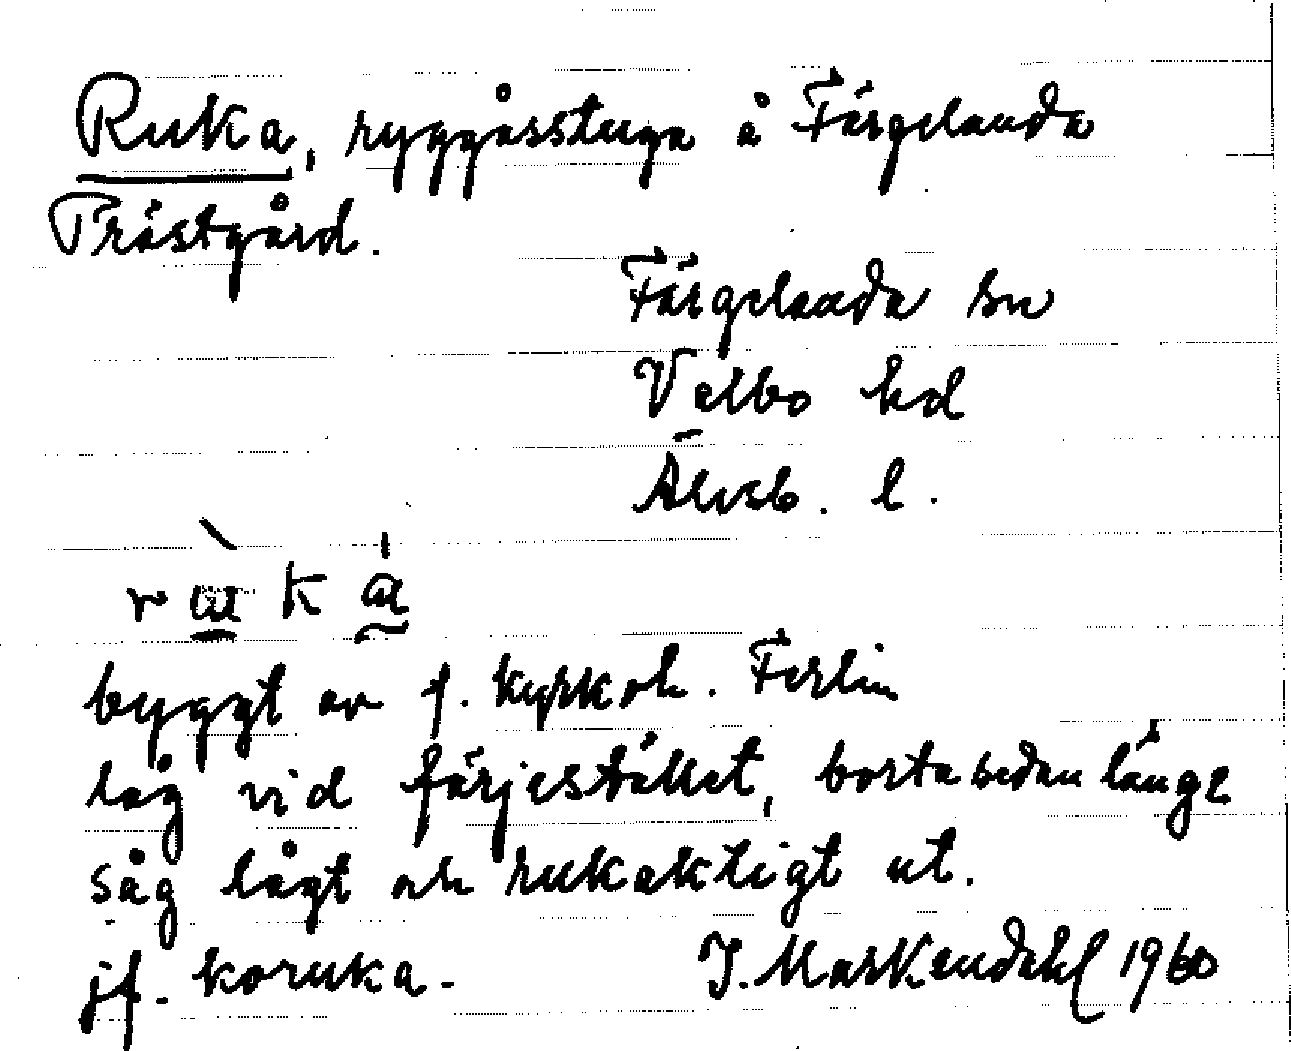 Ruka, ryggåsstuga å Färgelanda
Prästgård.
Färgelanda sn
Valbo hd
Älvsb. l.
byggt av f. kyrkoh. Ferlin
låg vid färjestället, borta sedan länge
såg lågt och rukaktigt ut.
jf. koruka.
J. Markendahl 1960